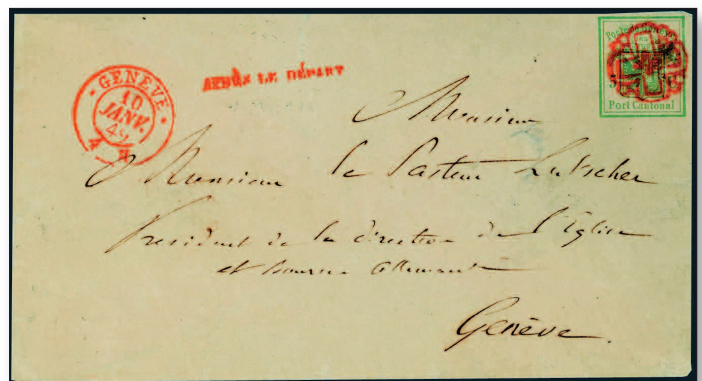 GENÈVE
10
JANV.
49
APRÈS LE DÉPART
Poste de Genève
Port Cantonal
Monsieur
Monsieur le Pasteur Lutscher
President de la direction de l'Eglise
et bourse allemande
Genève.